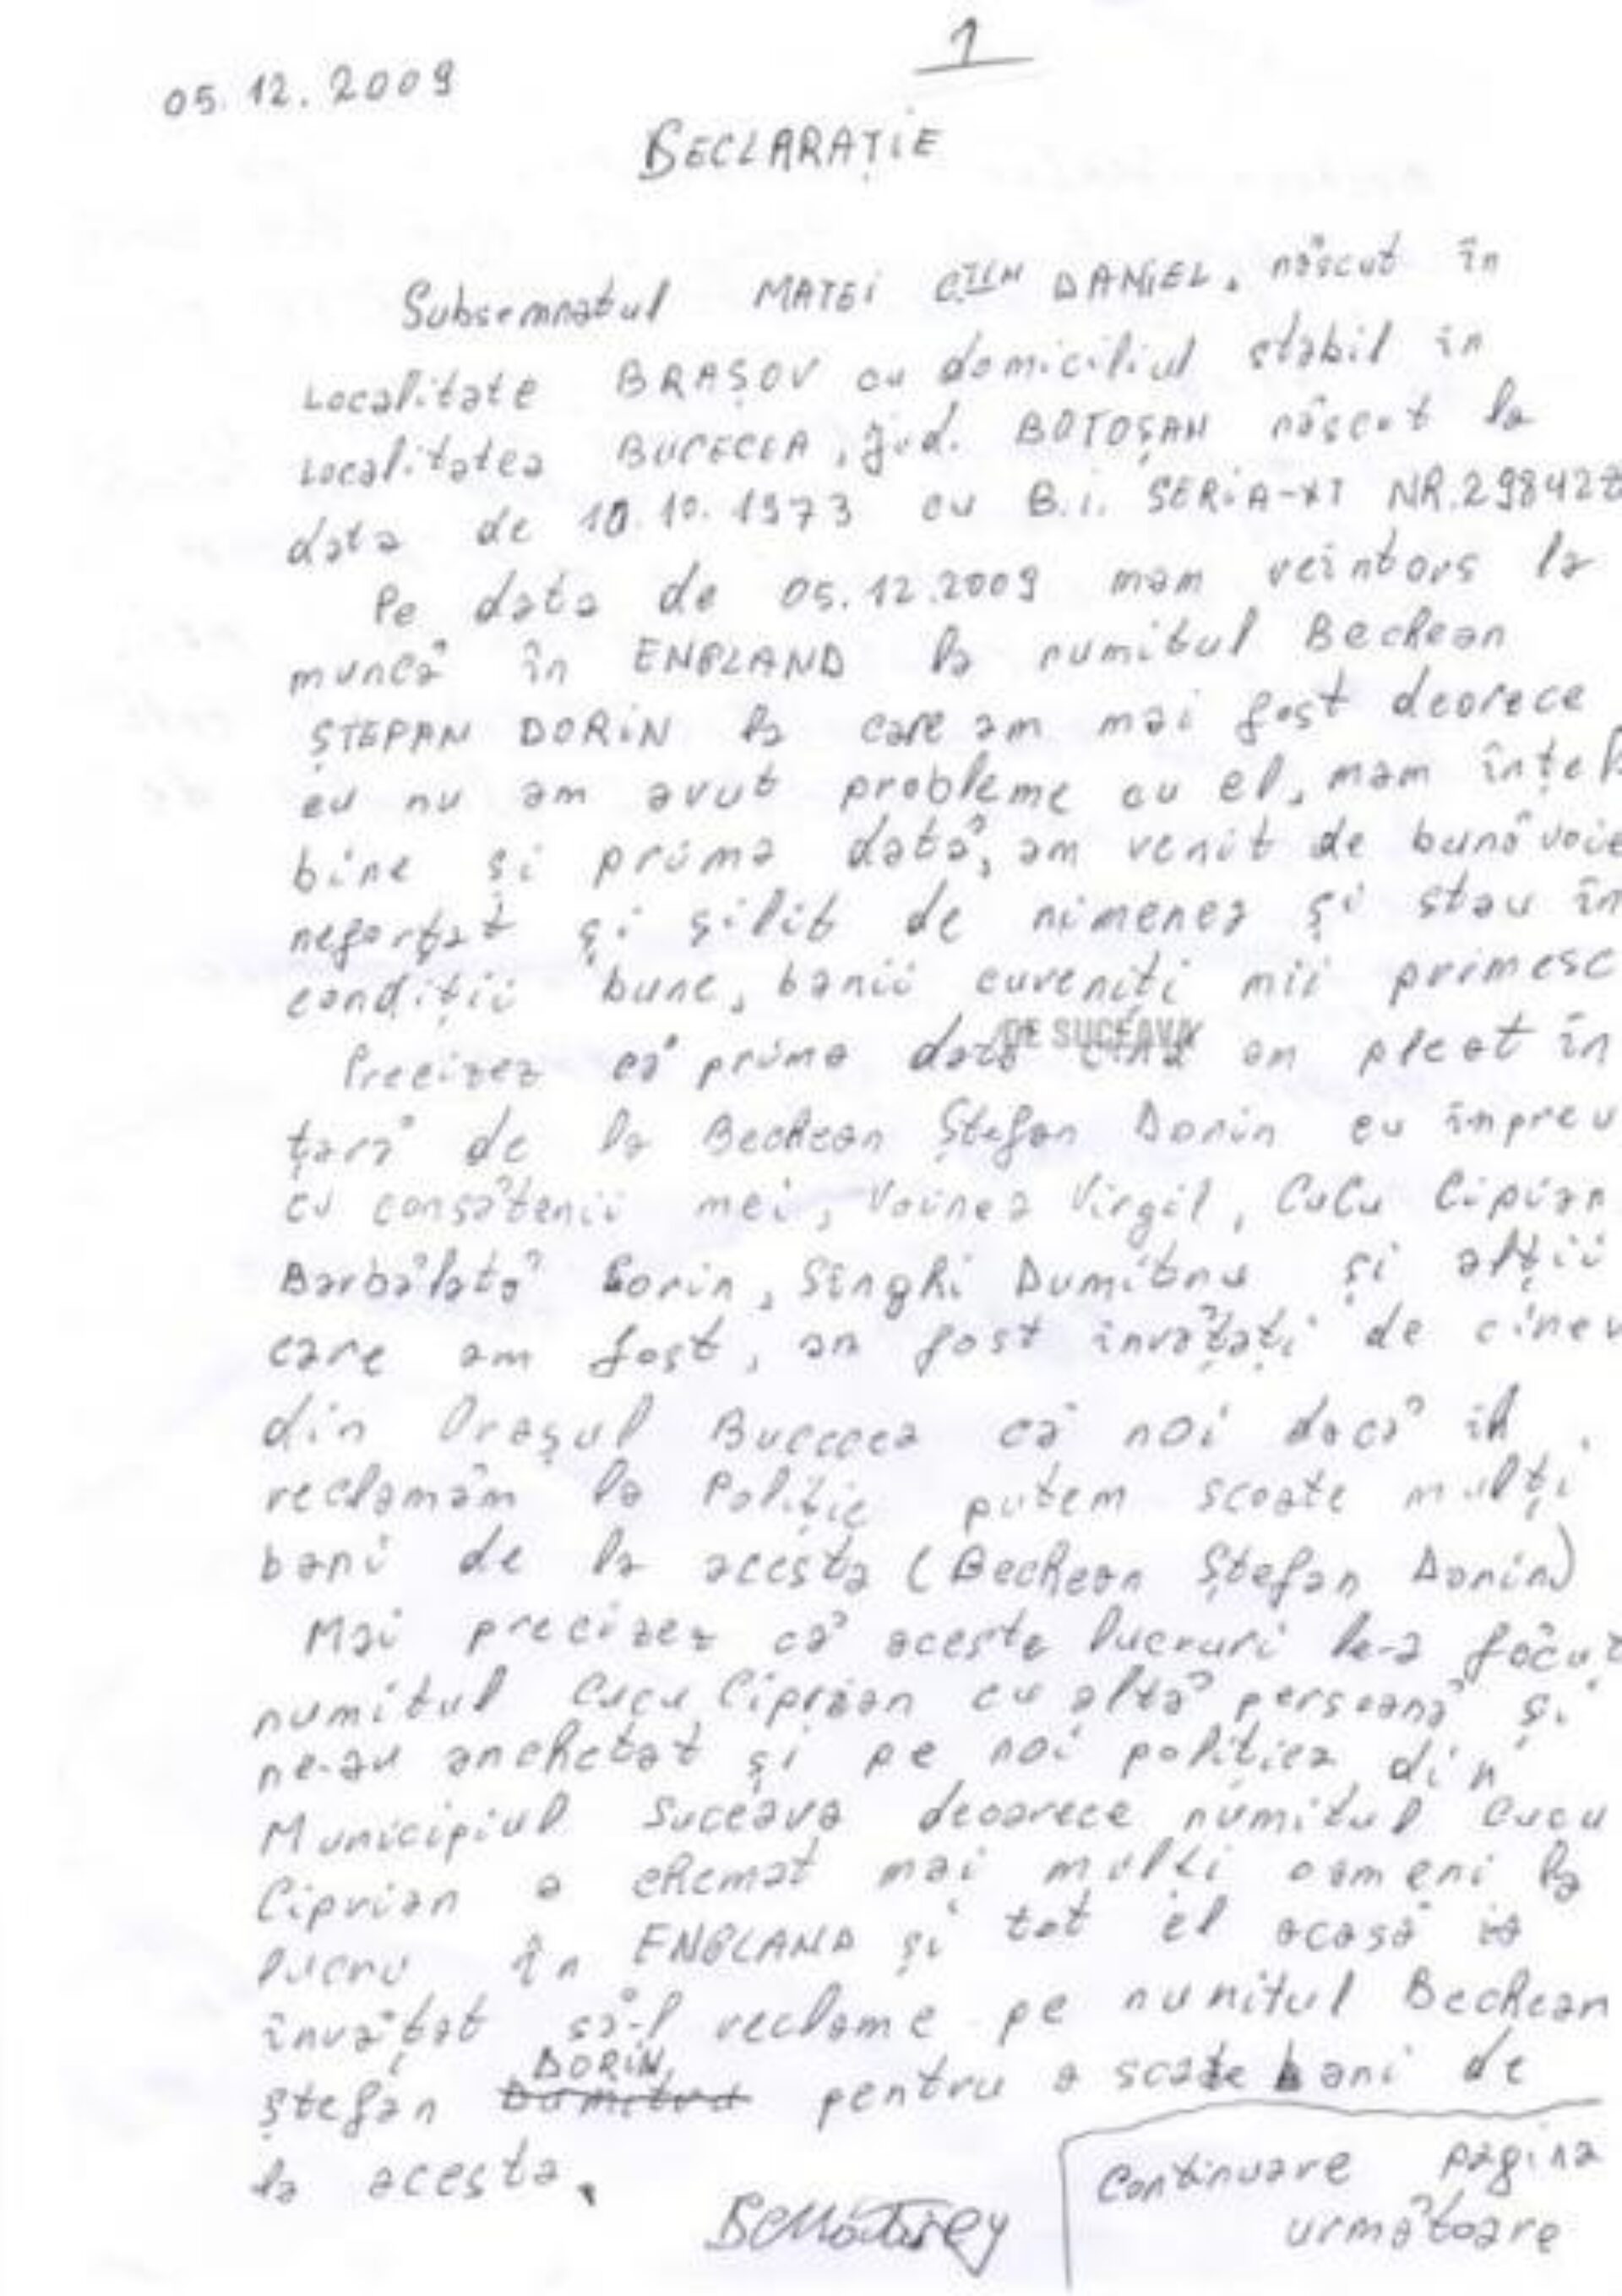 1
05.12.2009
DECLARAȚIE
Subsemnatul MATEI DANIEL, născut în
Localitate BRAȘOV cu domiciliul stabil în
Localitatea BUCECEA, jud. BOTOȘAN născut la
data de 10.10.1973 cu B.i. SERiA-XT NR.298428
Pe data de 05.12.2009 mam reîntors la
muncă în ENGLAND la numitul Bechean
ȘTEPAN DORiN la care am mai fost deorece
eu nu am avut probleme cu el, mam înțel
bine și prima dată, am venit de bunăvoie
neforțat și silit de nimenea și stau în
condiții bune, banii cuveniți mii primesc
DE SUCEAVA
Precizez că prima dată cînd am plecat în
țară de la Bechean Ștefan Dorin eu împreu
cu consătenii mei, Voinea Virgil, CuCu Ciprian
Barbălată Sorin, Singhi Dumitru și alții
care am fost, am fost învățați de cinev
din Orașul Bucecea că noi dacă il
reclamăm la Poliție putem scoate mulți
bani de la acesta (Bechean Ștefan Dorin)
Mai precizez că aceste lucruri le-a făcut
numitul Cucu Ciprian cu altă persoană și
ne-au anchetat și pe noi poliția din
Municipiul Suceava deoarece numitul Cucu
Ciprian a chemat mai mulți oameni la
lucru în ENGLAND și tot el acasă ia
învățat să-l reclame pe numitul Bechean
DORiN,
Ștefan Dumitru pentru a scoate bani de
la acesta.
Continuare pagina
următoare